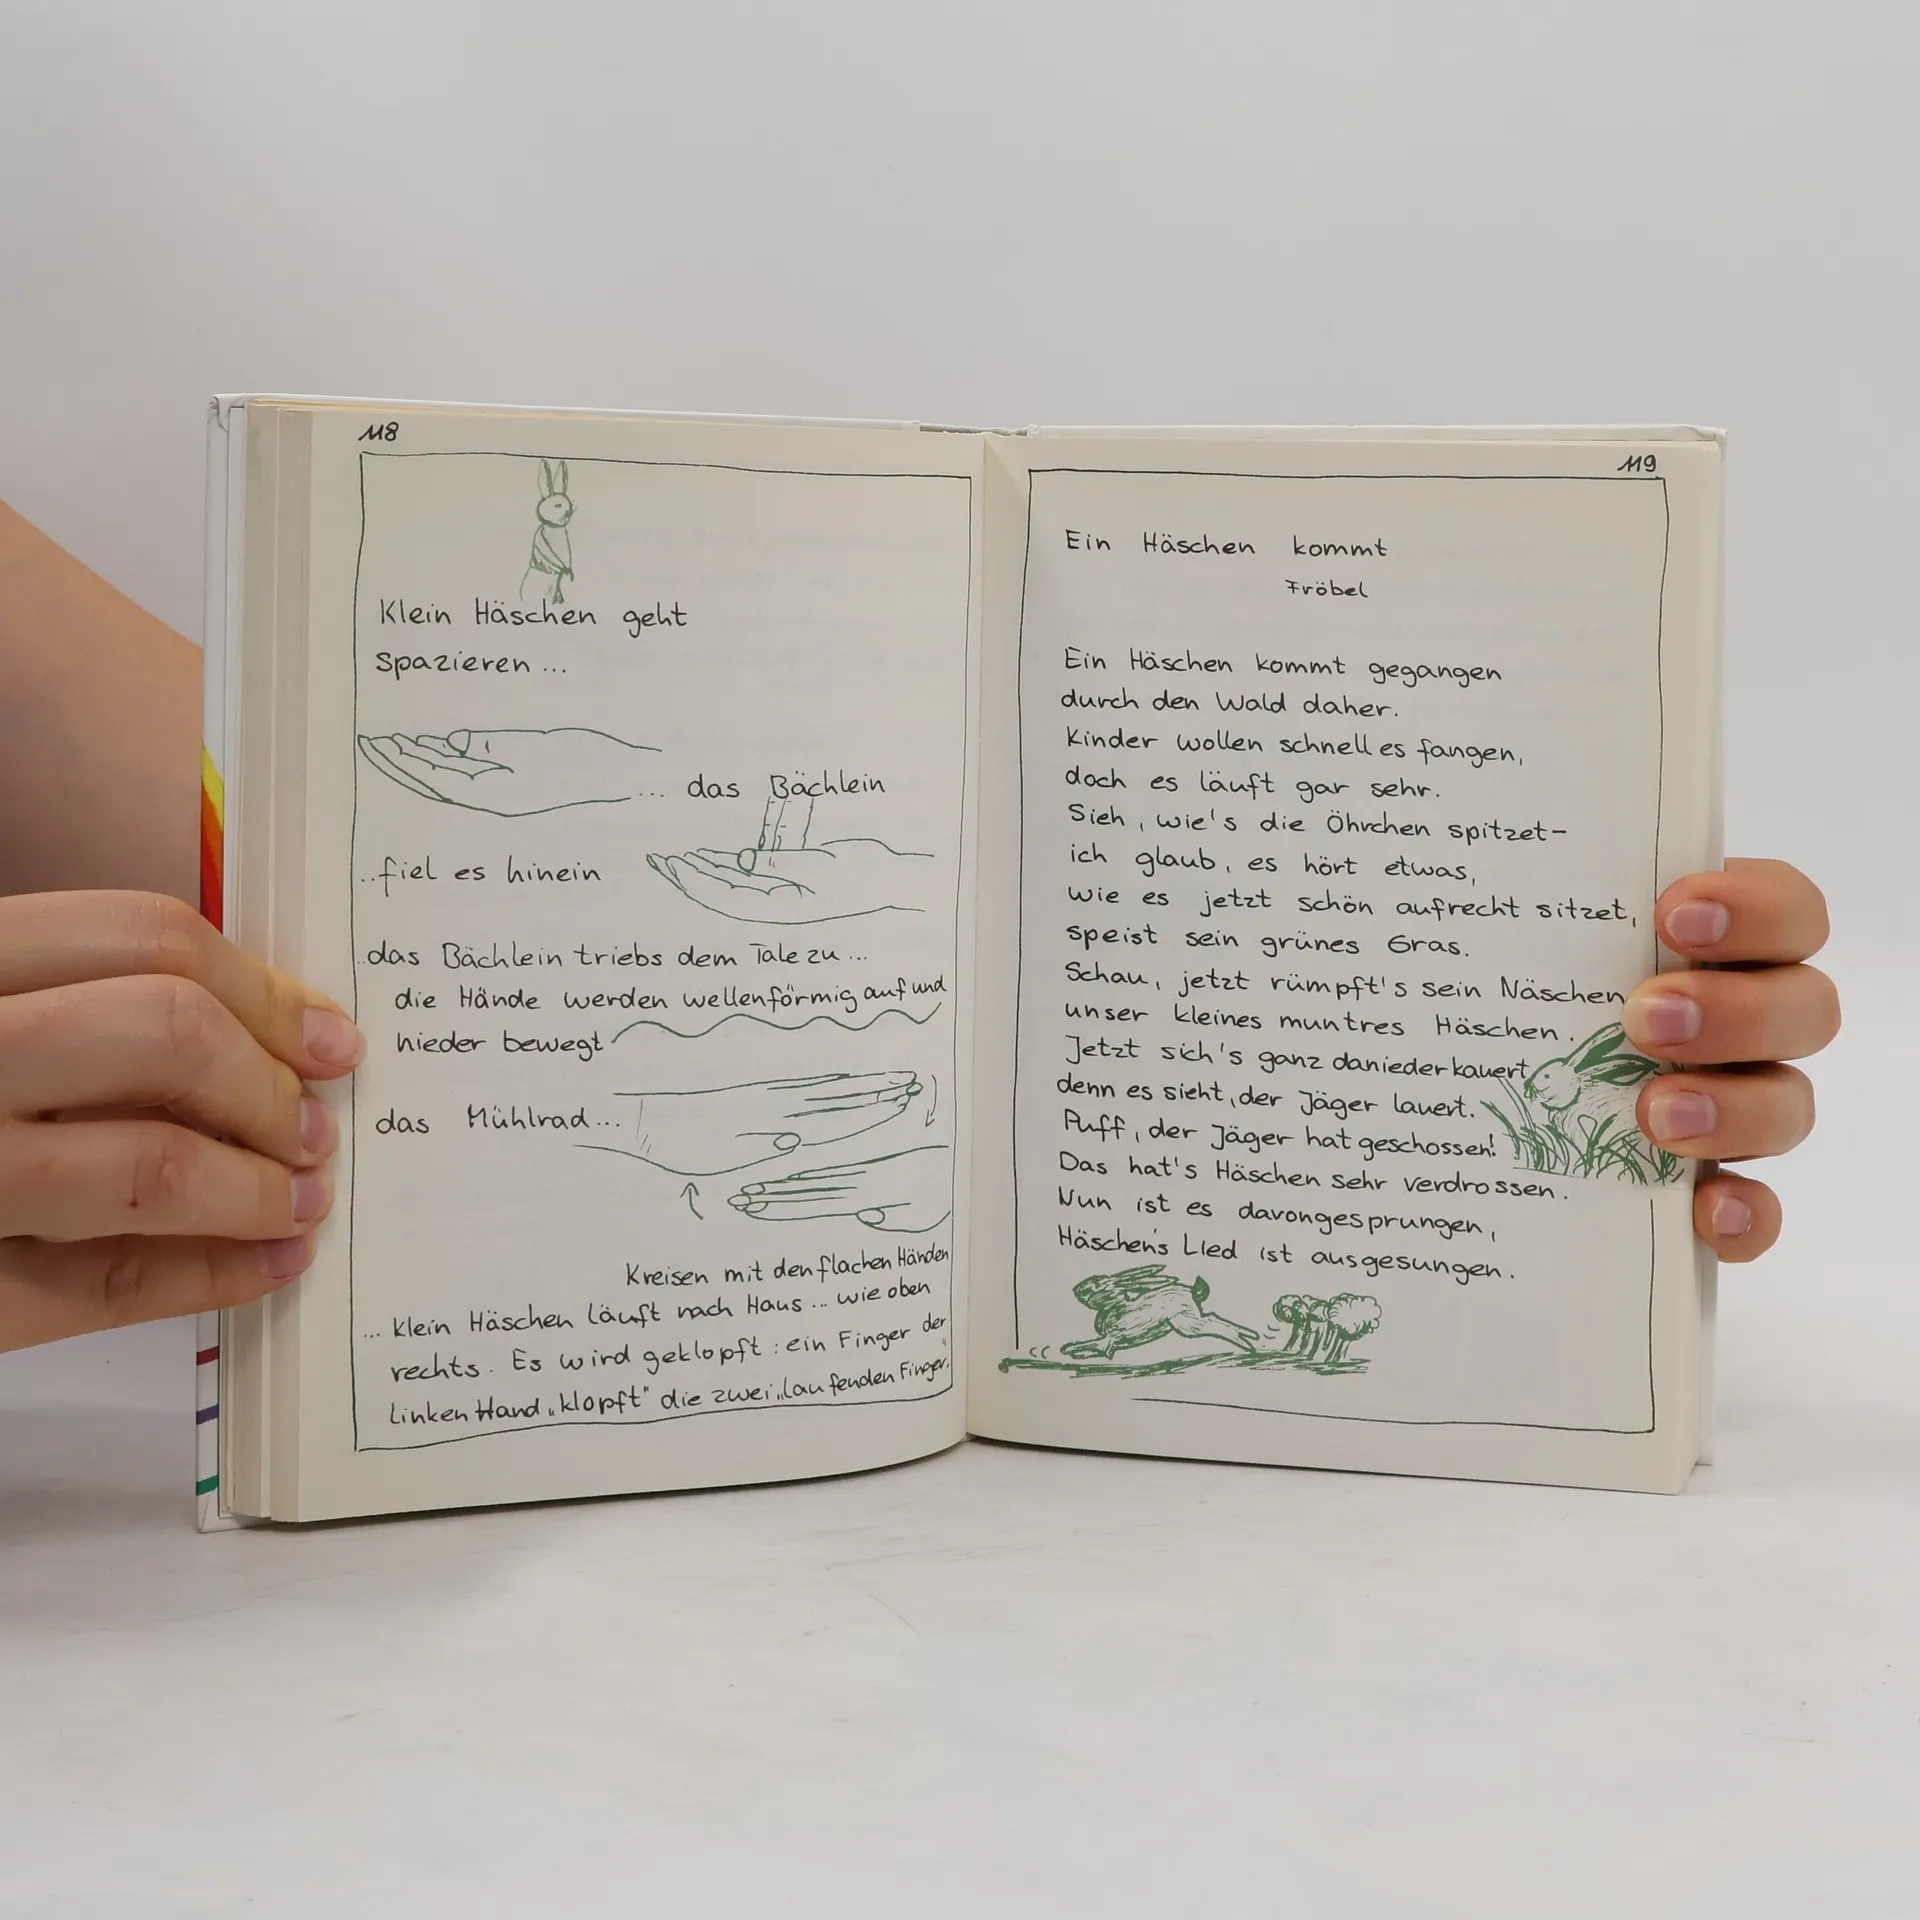 118
Klein Häschen geht
spazieren ...
... das Bächlein
..fiel es hinein
..das Bächlein triebs dem Tale zu ...
die Hände werden wellenförmig auf und
nieder bewegt
das Mühlrad...
Kreisen mit den flachen Händen
... klein Häschen läuft nach Haus ... wie oben
rechts. Es wird geklopft : ein Finger der
linken Hand „klopft" die zwei „laufenden Finger."
119
Ein Häschen kommt
Fröbel
Ein Häschen kommt gegangen
durch den Wald daher.
Kinder wollen schnell es fangen,
doch es läuft gar sehr.
Sieh, wie's die Öhrchen spitzet-
ich glaub, es hört etwas,
wie es jetzt schön aufrecht sitzet,
speist sein grünes Gras.
Schau, jetzt rümpft's sein Näschen
unser kleines muntres Häschen.
Jetzt sich's ganz danieder kauert
denn es sieht, der Jäger lauert.
Puff, der Jäger hat geschossen!
Das hat's Häschen sehr verdrossen.
Nun ist es davongesprungen,
Häschen's Lied ist ausgesungen.